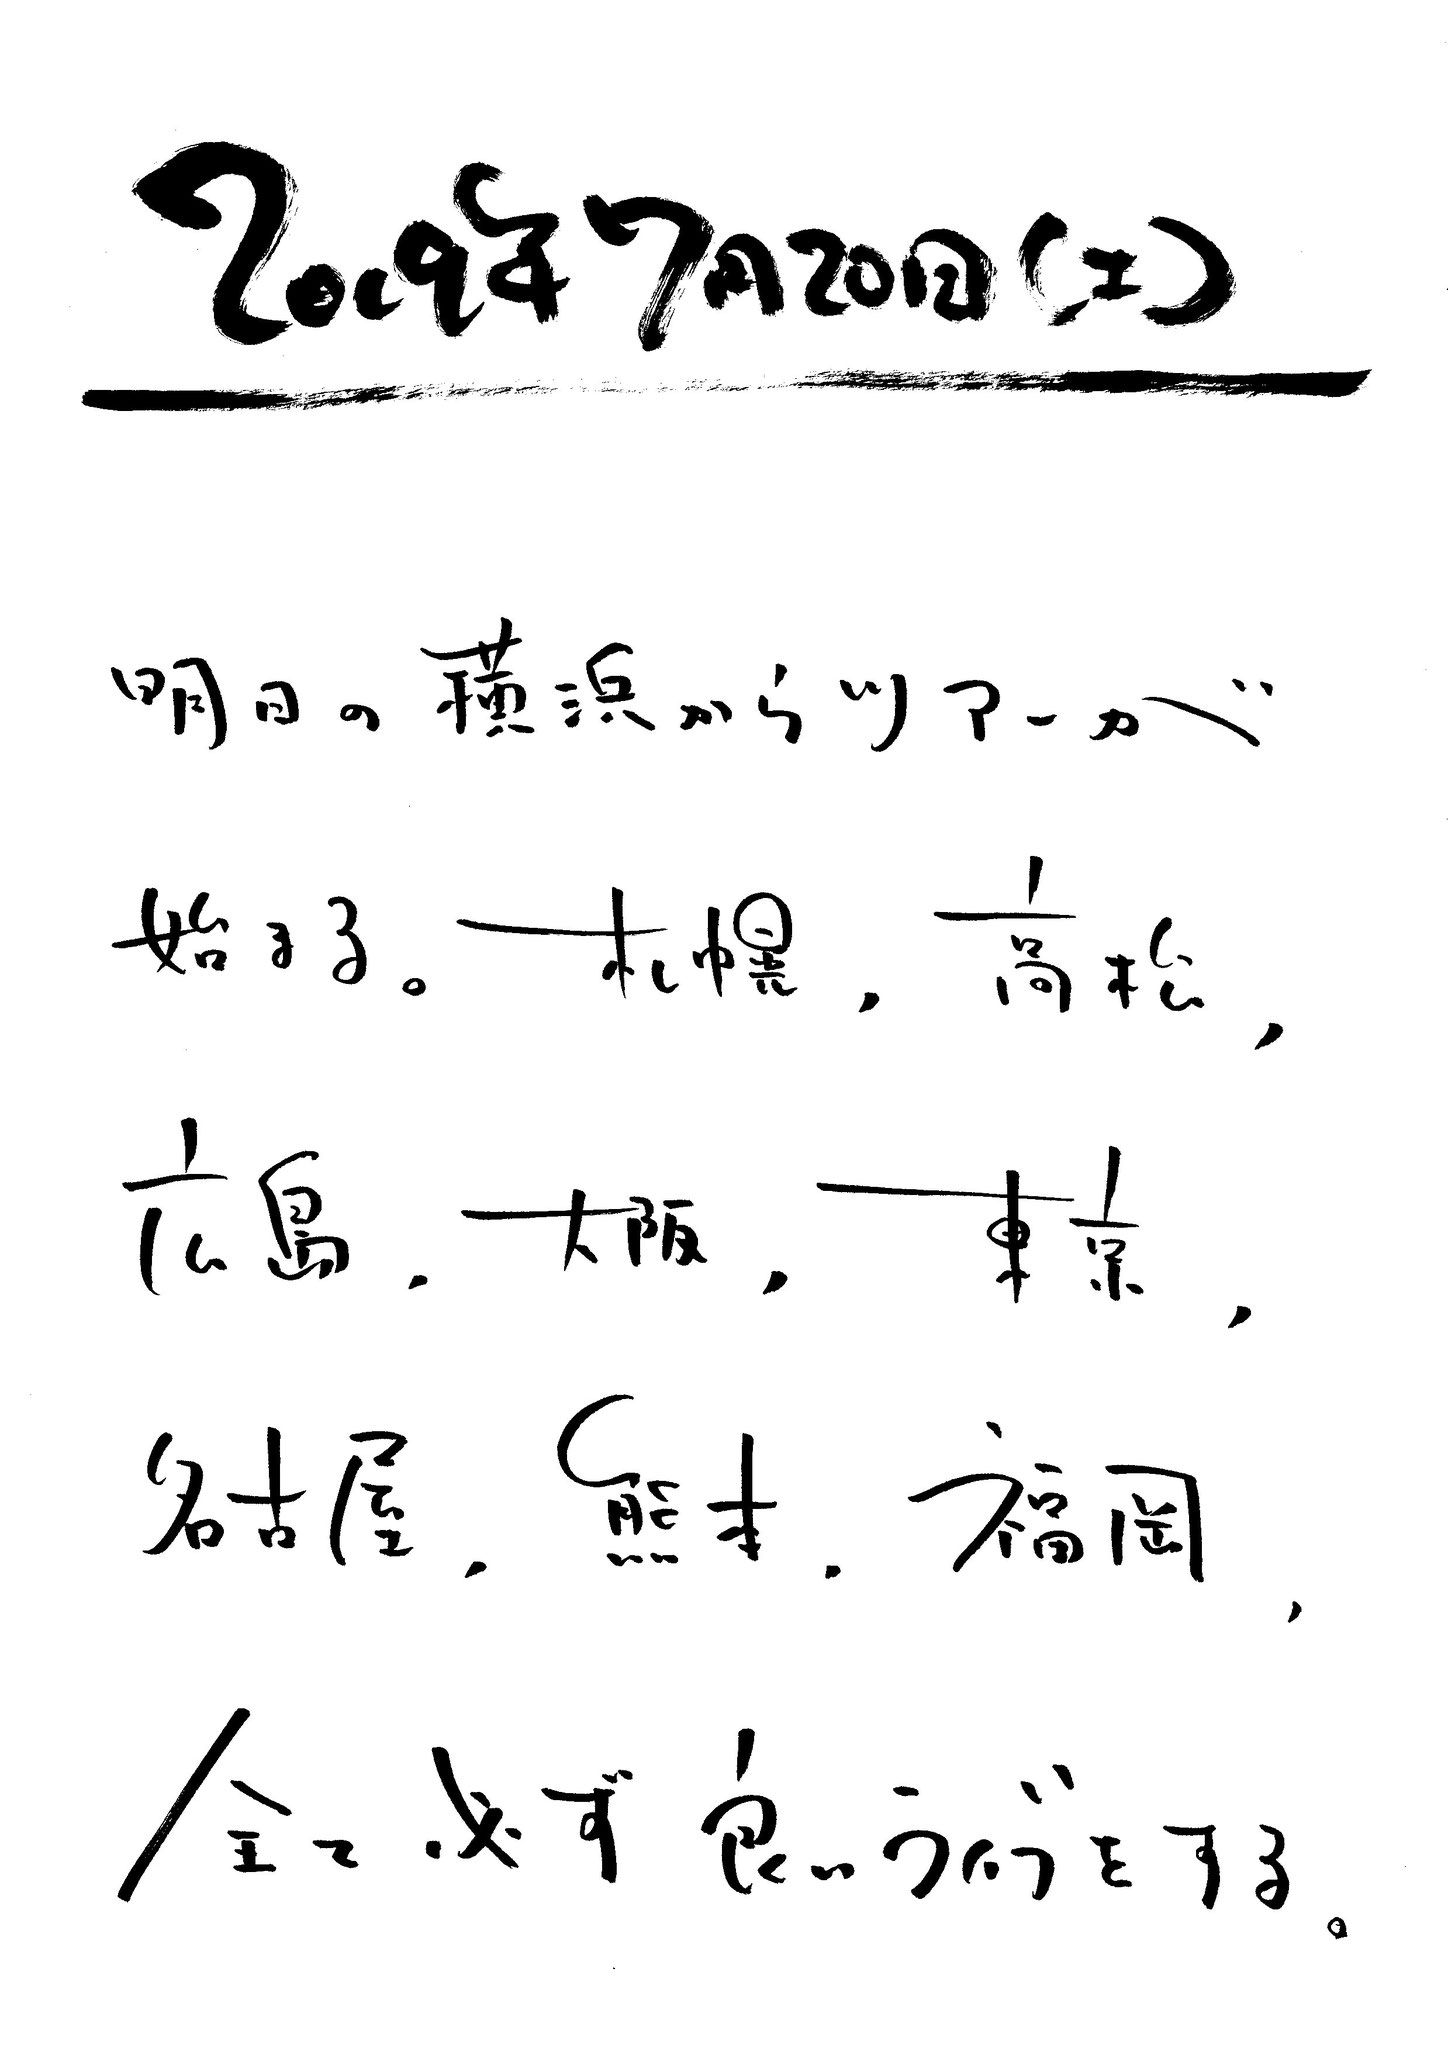 2019年7月20日(土)
明日の横浜からツアーが
始まる。札幌,高松,
広島,大阪,東京,
名古屋,熊本,福岡,
全て必ず良いライブをする。